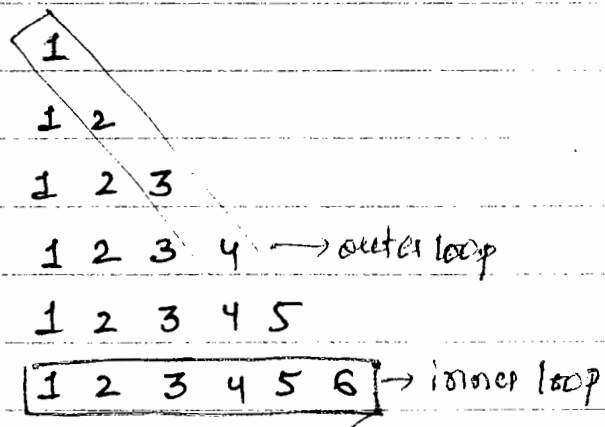 1
1 2
1 2 3
1 2 3 4 → outer loop
1 2 3 4 5
1 2 3 4 5 6 → inner loop